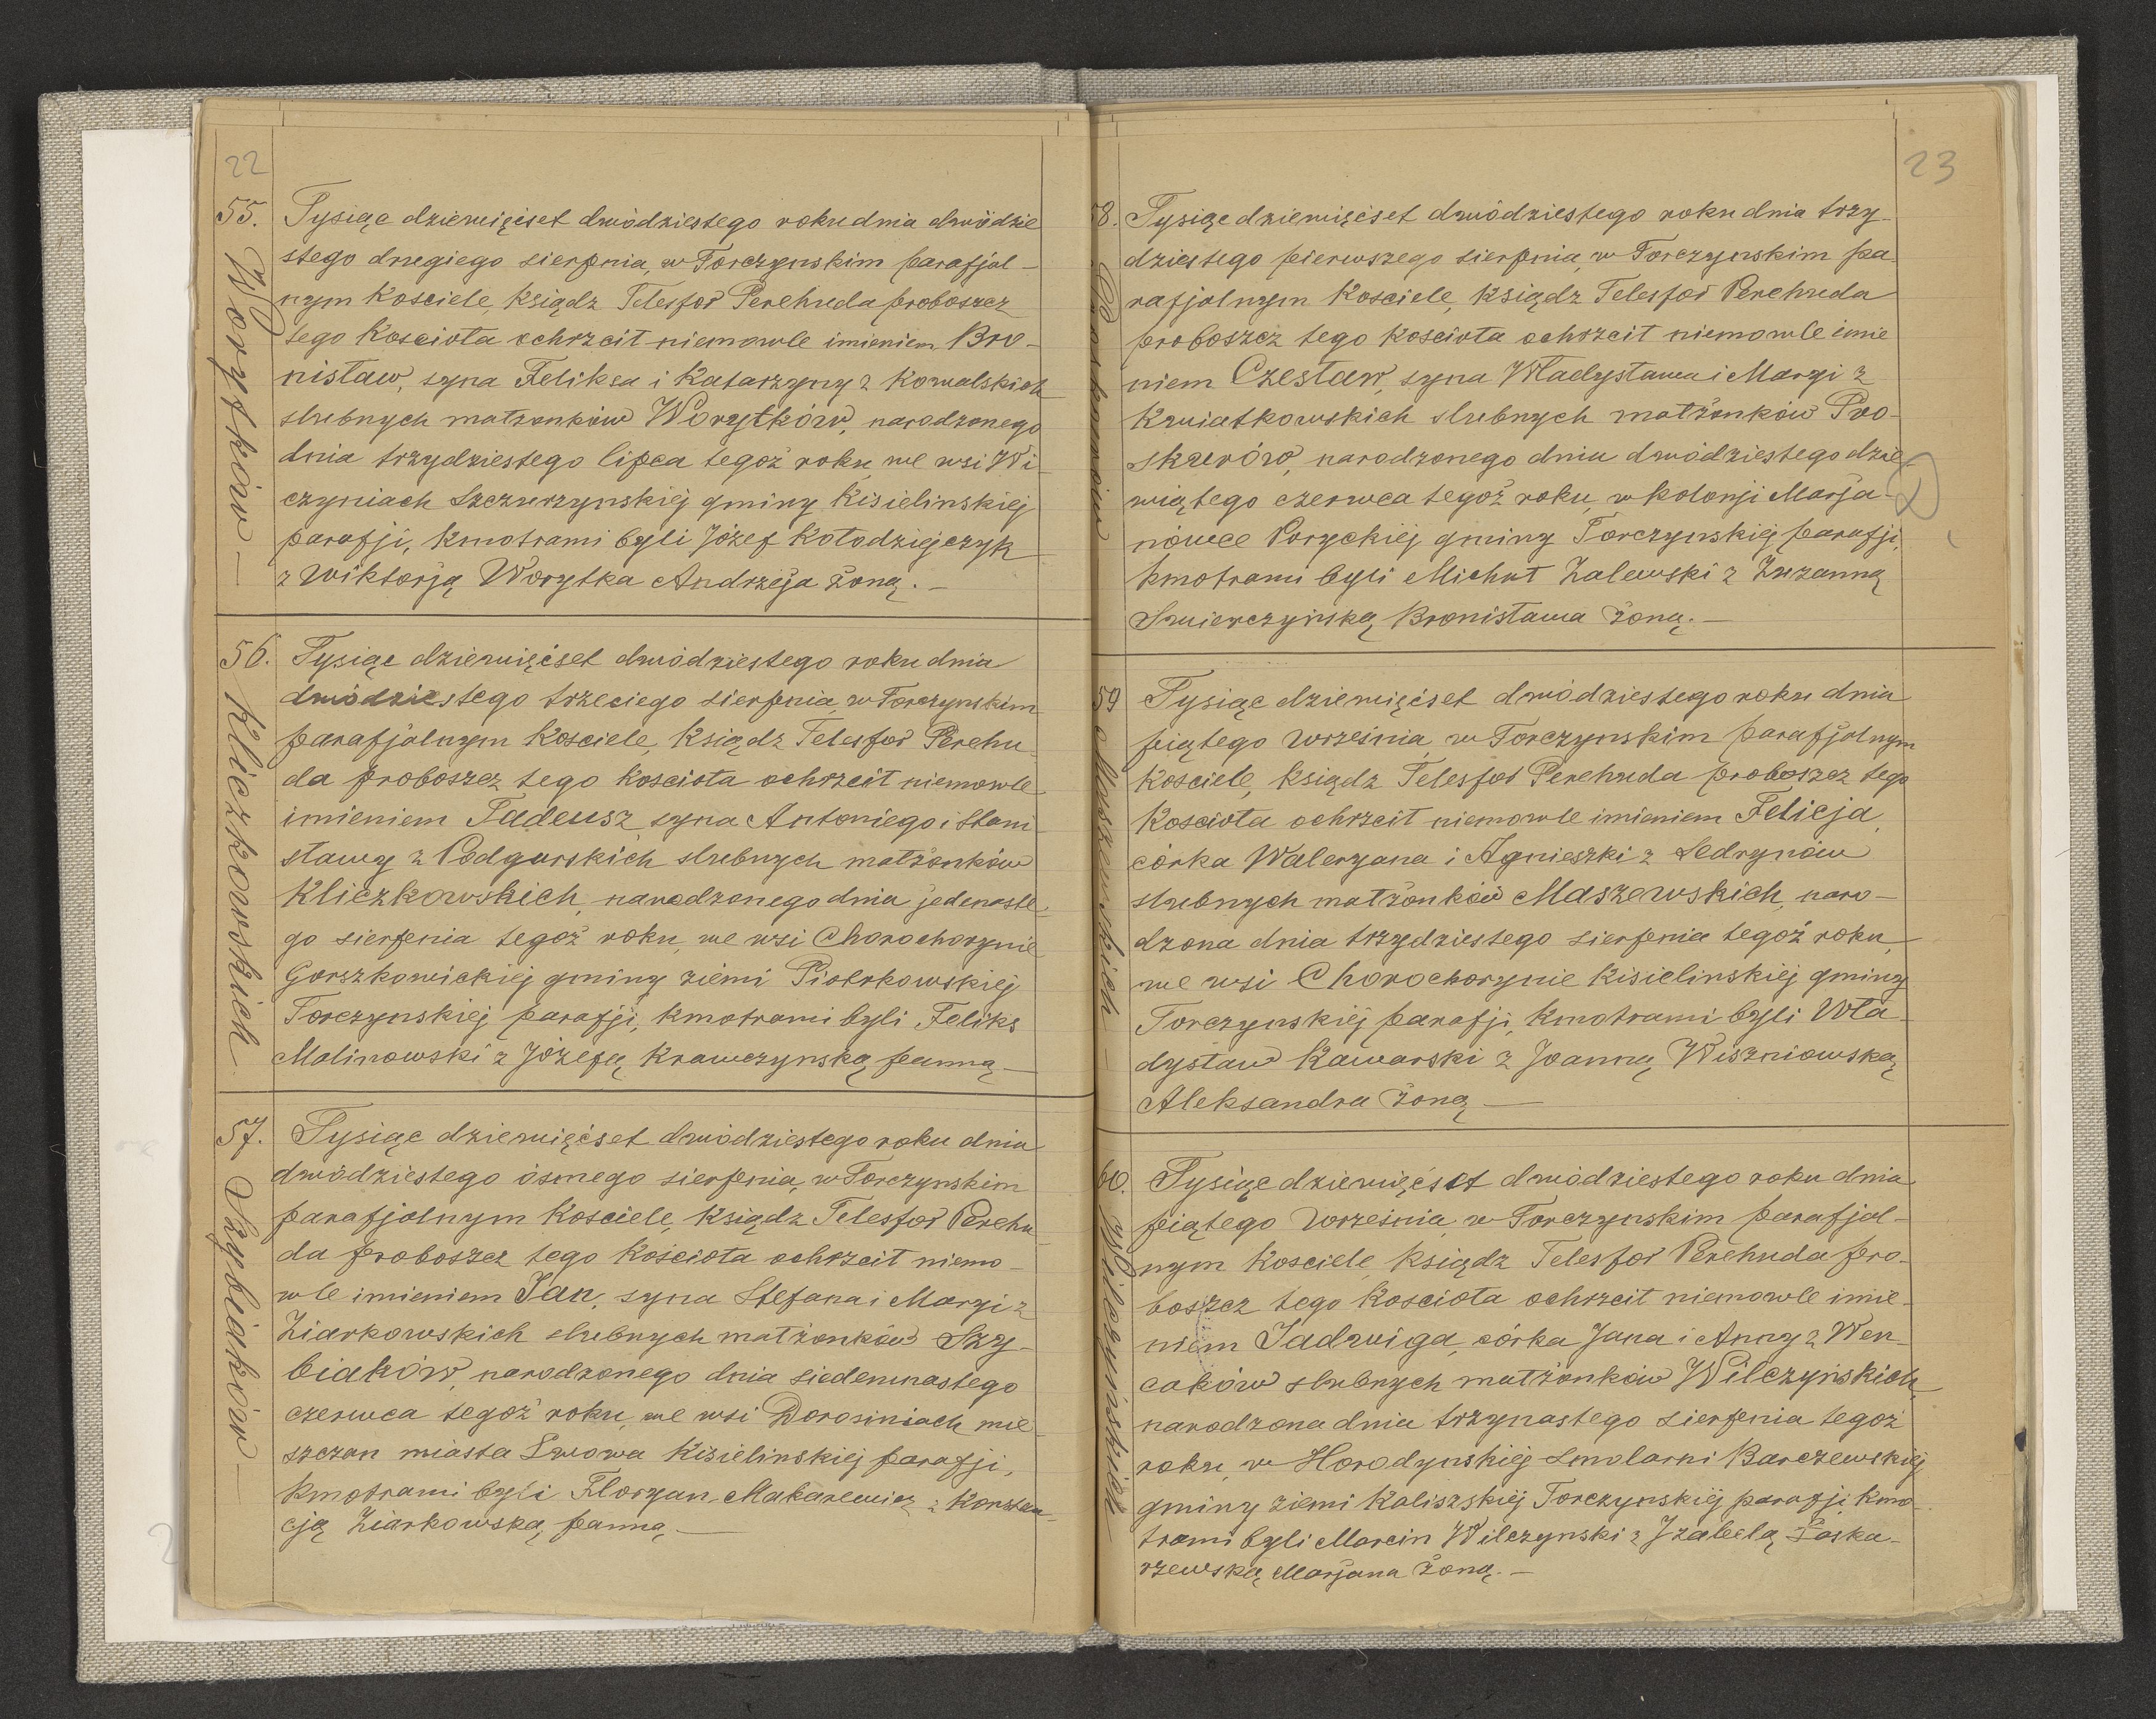 22
55.
Worytków —
Tysiąc dziewięćset dwódziestego roku dnia dwódzie
stego drugiego sierpnia, w Torczynskim parafjal-
nym Kosciele, Ksiądz Telesfor Perehuda proboszcz
tego Kosciota ochrzcit niemowle imieniem Bro-
nistaw, syna Feliksa i Katarzyny z Kowalskich
slubnych matzonków Worytków, narodzonego
dnia trzydziestego lipca tegoż roku we wsi Wi
czyniach Szczurzynskiej gminy Kisielinskiej
parafji, Kmotrami byli Józef Kotodziejczyk
z Wiktorją Worytka Andrzeja żoną. —
56.
Kliczkowskich
Tysiąc dziewięćset dwódziestego roku dnia
dwódziestego trzeciego sierpnia, w Torczynskim
parafjalnym Kosciele, Ksiądz Telesfor Perehu
da proboszcz tego Kosciota ochrzcit niemowle
imieniem Tadeusz, syna Antoniego i Stani
stawy z Podgurskich slubnych matżonków
Kliczkowskich, narodzonego dnia jedenaste-
go sierpnia tegoż roku, we wsi Chorochorynie
Gorszkowickiej gminy ziemi Piotrkowskiej
Torczynskiej parafji, Kmotrami byli Feliks
Malinowski z Józefą Krawczynską panną —
57.
Szybiaków —
Tysiąc dziewięćset dwódziestego roku dnia
dwódziestego ósmego sierpnia, w Torczynskim
parafjalnym Kosciele, Ksiądz Telesfor Perehu
da proboszcz tego Kościota ochrzcit niemo-
wle imieniem Jan, syna Stefana i Maryi z
Ziarkowskich slubnych matżonków Szy-
biaków, narodzonego dnia siedemnastego
czerwca tegoż roku, we wsi Dorosiniach mie
szczan miasta Lwowa Kisielinskiej parafji,
Kmotrami byli Floryan Makarewicz z Konstan-
cją Ziarkowską, panną. —
23
58.
Tysiąc dziewięćset dwódziestego roku dnia trzy-
dziestego pierwszego sierpnia, w Torczynskim pa
rafjalnym Kosciele, Ksiądz Telesfor Perehuda
proboszcz tego Kosciota ochrzcit niemowle imie
niem Czestaw, syna Wladystawa i Maryi z
Kwiatkowskich slubnych matżonków Pro-
skurów, narodzonego dnia dwódziestego dzie-
wiątego czerwca tegoż roku, w kolonji Marja-
nówce Poryckiej gminy Torczynskiej parafji,
Kmotrami byli Michat Zalewski z Zuzanną
Bronistawa żoną. —
59
Maszewskich —
Tysiąc dziewięćset dwódziestego roku dnia
piątego wrzesnia, w Torczynskim parafjalnym
Kosciele, Ksiądz Telesfor Perehuda proboszcz tego
Kosciota ochrzcit niemowle imieniem Felicja,
córka Waleryana i Agnieszki z Sedrynów
slubnych matżonków Maszewskich, naro-
dzona dnia trzydziestego sierpnia tegoż roku,
we wsi Chorochorynie Kisielinskiej gminy
Torczynskiej parafji, Kmotrami byli Wta
dystaw Kawarski z Joanną Wiszniowską
Aleksandra żoną —
60.
Wilczyńskich
Tysiąc dziewięćset dwódziestego roku dnia
piątego wrzesnia, w Torczynskim parafjal-
nym Kosciele, Ksiądz Telesfor Perehuda pro-
boszcz tego Kosciota ochrzcit niemowle imie-
niem Jadwiga, córka Jana i Anny z Wen-
caków slubnych matżonków Wilczyńskich
narodzona dnia trzynastego sierpnia tegoż
roku, w Horodynskiej Smolarni Barczewskiej
gminy ziemi Kaliszskiej Torczynskiej parafji, Kmo-
trami byli Marcin Wilczynski z Izabelą Laska-
rzewską Marjana żoną. —